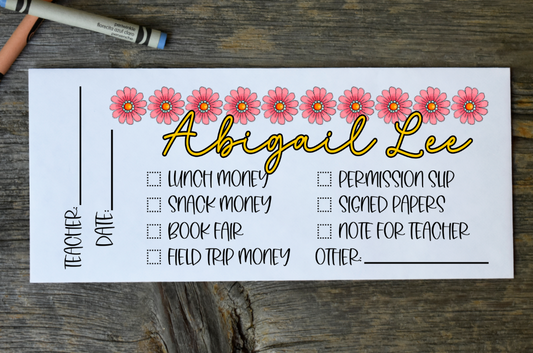 Abigail Lee
LUNCH MONEY
SNACK MONEY
BOOK FAIR
FIELD TRIP MONEY
PERMISSION SLIP
SIGNED PAPERS
NOTE FOR TEACHER
OTHER:
TEACHER:
DATE: